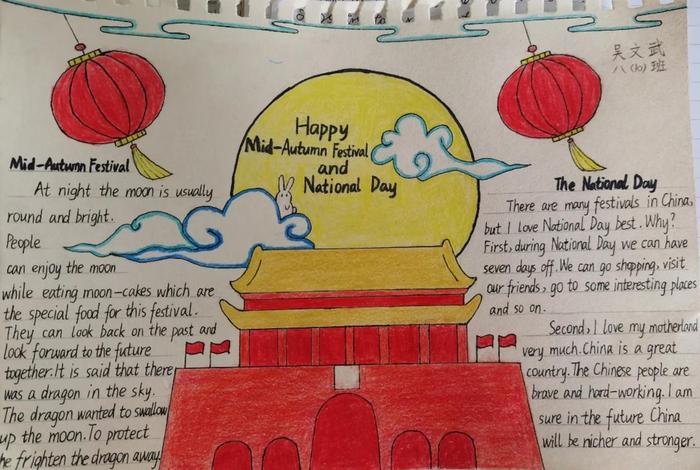 吴文武
八(10)班
Happy
Mid-Autumn Festival
and
National Day
Mid-Autumn Festival
At night the moon is usually
round and bright.
People
can enjoy the moon
while eating moon-cakes which are
the special food for this festival.
They can look back on the past and
look forward to the future
together.It is said that there
was a dragon in the sky.
The dragon wanted to swallow
up the moon.To protect
he frighten the dragon away.
The National Day
There are many festivals in China,
but I love National Day best. Why?
First, during National Day we can have
seven days off. We can go shopping, visit
our friends, go to some interesting places
and so on.
Second, I love my motherland
very much.China is a great
country.The Chinese people are
brave and hard-working. I am
sure in the future China
will be nicher and stronger.